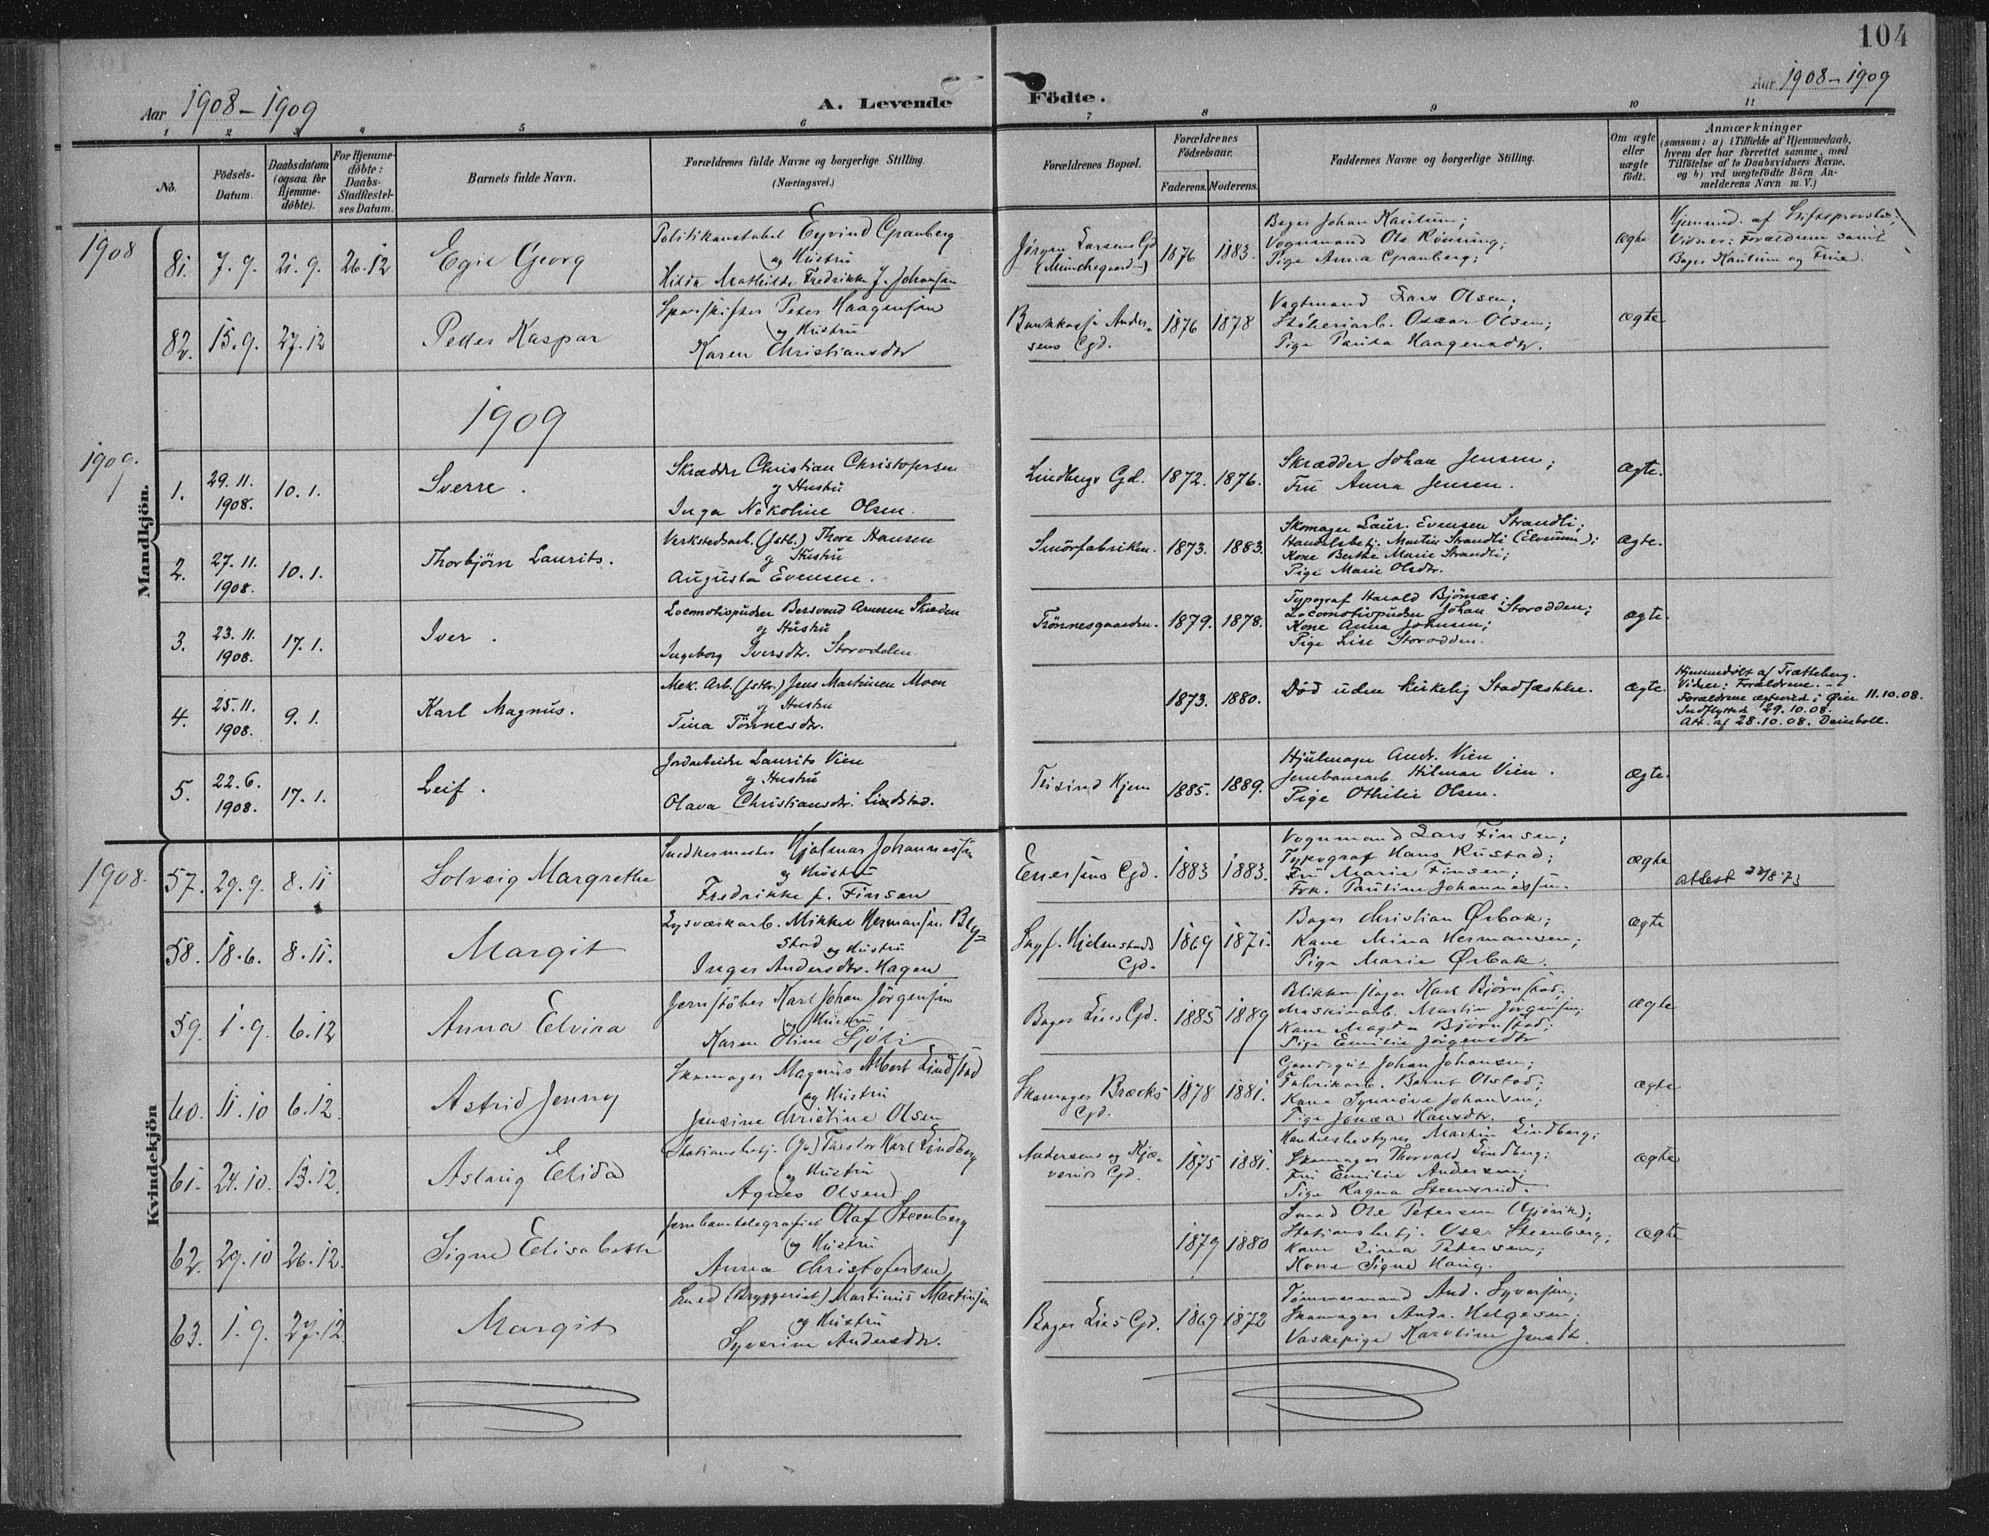 104
Aar 1908-1909
A. Levende
Födte.
Aar 1908-1909
1 2 3 4 5 6 7 8 9 10 11
No.
Födsels-Datum.
Daabsdatum (ogsaa for Hjemme-döbte).
For Hjemme-döbte: Daabs-Stadfæstel-ses Datum.
Barnets fulde Navn.
Forældrenes fulde Navne og borgerlige Stilling. (Næringsvei.)
Forældrenes Bopæl.
Forældrenes Födselsaar.
Faderens. Moderens.
Faddernes Navne og borgerlige Stilling.
Om ægte eller uægte födt.
Anmærkninger
(saasom: a) i Tilfælde af Hjemmedaab, hvem der har forrettet samme, med Tilföielse af to Daabsvidners Navne. og b) ved uægtefödte Börn An-melderens Navn m. V.)
Mandkjön.
1908
81. 7.9. 21.9. 26.12 Egil Georg
Politikonstabel Eyvind Granberg
og Hustru
Hilda Mathilde Fredrikke f. Johansen
Jörgen Larsens Gd
(Munchegaarden)
1876 1883.
Bager Johan Kaulum;
Vognmand Ole Rönning;
Pige Anna Granberg;
ægte
Hjemmed. af Stiftsprovsten;
Vidner: Forældrene samt
Bager Kaulum og Frue.
82. 15.9. 27.12 Peder Kaspar
Sporskifter Peter Haagensen
og Hustru
Karen Christiansdtr
Bankkasse Ander-
sens Gd.
1876 1878
Vagtmand Lars Olsen;
Stöberiarb. Oscar Olsen;
Pige Paula Haagensdtr.
ægte
1909
1909.
1. 29.11. 1908. 10.1. Sverre.
Skrædder Christian Christofersen
og Hustru
Inga Nekoline Olsen.
Lindbergs Gd. 1872. 1876.
Skrædder Johan Jensen;
Fru Anna Jensen.
ægte.
2. 27.11. 1908. 10.1. Thorbjörn Laurits.
Verkstedsarb. (jstb.) Thore Hansen
og Hustru
Augusta Evensen.
Smörfabriken. 1873. 1883.
Skomager Laur. Evensen Strandli;
Handelsbetj. Martin Strandli (Elverum);
Kone Berthe Marie Strandli;
Pige Marie Olsdtr.
ægte.
3. 23.11. 1908. 17.1. Iver.
Locomotivpudser Bersvend Arnesen
og Hustru
Ingeborg Iversdtr. Storodden
Trönnesgaarden. 1879. 1878.
Typograf Harald Björnæs;
Locomotivpudser Johan Storodden;
Kone Anna Johnsen;
Pige Lise Storodden.
ægte.
4. 25.11. 1908. 9.1. Karl Magnus.
Mek. Arb. (jstb.) Jens Martinsen Moen
og Hustru
Tina Tönnesdtr.
1873. 1880.
Död uden kirkelig Stadfæstelse.
ægte.
Hjemmedöbt af Trætteberg.
Vidner: Forældrene.
Forældrene ægteviet i Öier 11.10.08.
Indflyttet 29.10.08.
Att. af 28.10.08. Deinboll.
5. 22.6. 1908. 17.1. Leif.
Jordarbeider Laurits Vien
og Hustru
Olava Christiansdtr. Lindstad.
Hjem 1885. 1889.
Hjulmager Andr. Vien.
Jernbanearb. Hilmar Vien.
Pige Othilie Olsen.
ægte.
Kvindekjön
1908.
57. 29.9. 8.11 Solveig Margrethe
Snedkermester Hjalmar Johannessen
og Hustru
Fredrikke f. Finsen
Enersens Gd. 1883 1883.
Vognmand Lars Finsen;
Typograf Hans Rustad;
Fru Marie Finsen;
Frk. Pauline Johannessen.
ægte
attest 22/8 73
58. 18.6. 8.11. Margit
Lysværkarb. Mikkel Hermansen Bly-
stad og Hustru
Inger Andersdtr. Hagen
Sagf. Hjelmstads
Gd.
1869 1871.
Bager Christian Örbak;
Kone Mina Hermansen;
Pige Marie Örbak.
ægte
59. 1.9. 6.12 Anna Elvira
Jernstöber Karl Johan Jörgensen
og Hustru
Karen Oline Sjöli
Bager Lies Gd. 1885 1889
Blikkenslager Karl Björnstad;
Maskinarb. Martin Jörgensen;
Kone Magda Björnstad;
Pige Emilie Jörgensdtr
ægte
60. 11.10 6.12. Astrid Jenny
Skomager Magnus Albert Lindstad
og Hustru
Jensine Christine Olsen
Skomager Brecks
Gd.
1878 1881.
Gaardsgut Johan Johansen;
Fabrikarb. Bernt Olstad;
Kone Synnöve Johansen;
Pige Jonea Hansdtr.
ægte
61. 24.10. 13.12. Aslaug Elida
Stationsbetj. Theodor Karl Lindberg
og Hustru
Agnes Olsen
Andersens og Kjæ-
verud Gd.
1875 1881.
Handelsbestyrer Martin Lindberg;
Skomager Thorvald Lindberg;
Fru Emilie Andersen;
Pige Ragna Steensrud.
ægte
62. 29.10 26.12. Signe Elisabeth
Jernbanetelegrafist Olaf Steenberg
og Hustru
Anna Christofersen
1879 1880
Smed Ole Petersen (Gjövik);
Stationsbetj. Ose Steenberg;
Kone Lina Petersen;
Kone Signe Haug.
ægte
63. 1.9. 27.12 Margit
Smed (Bryggeriet) Martinus Martinsen
og Hustru
Syverine Andersdtr.
Bager Lies Gd. 1869 1872
Tömmermand And. Syversen;
Skomager Andr. Helgesen;
Vaskepige Karoline Jensdtr.